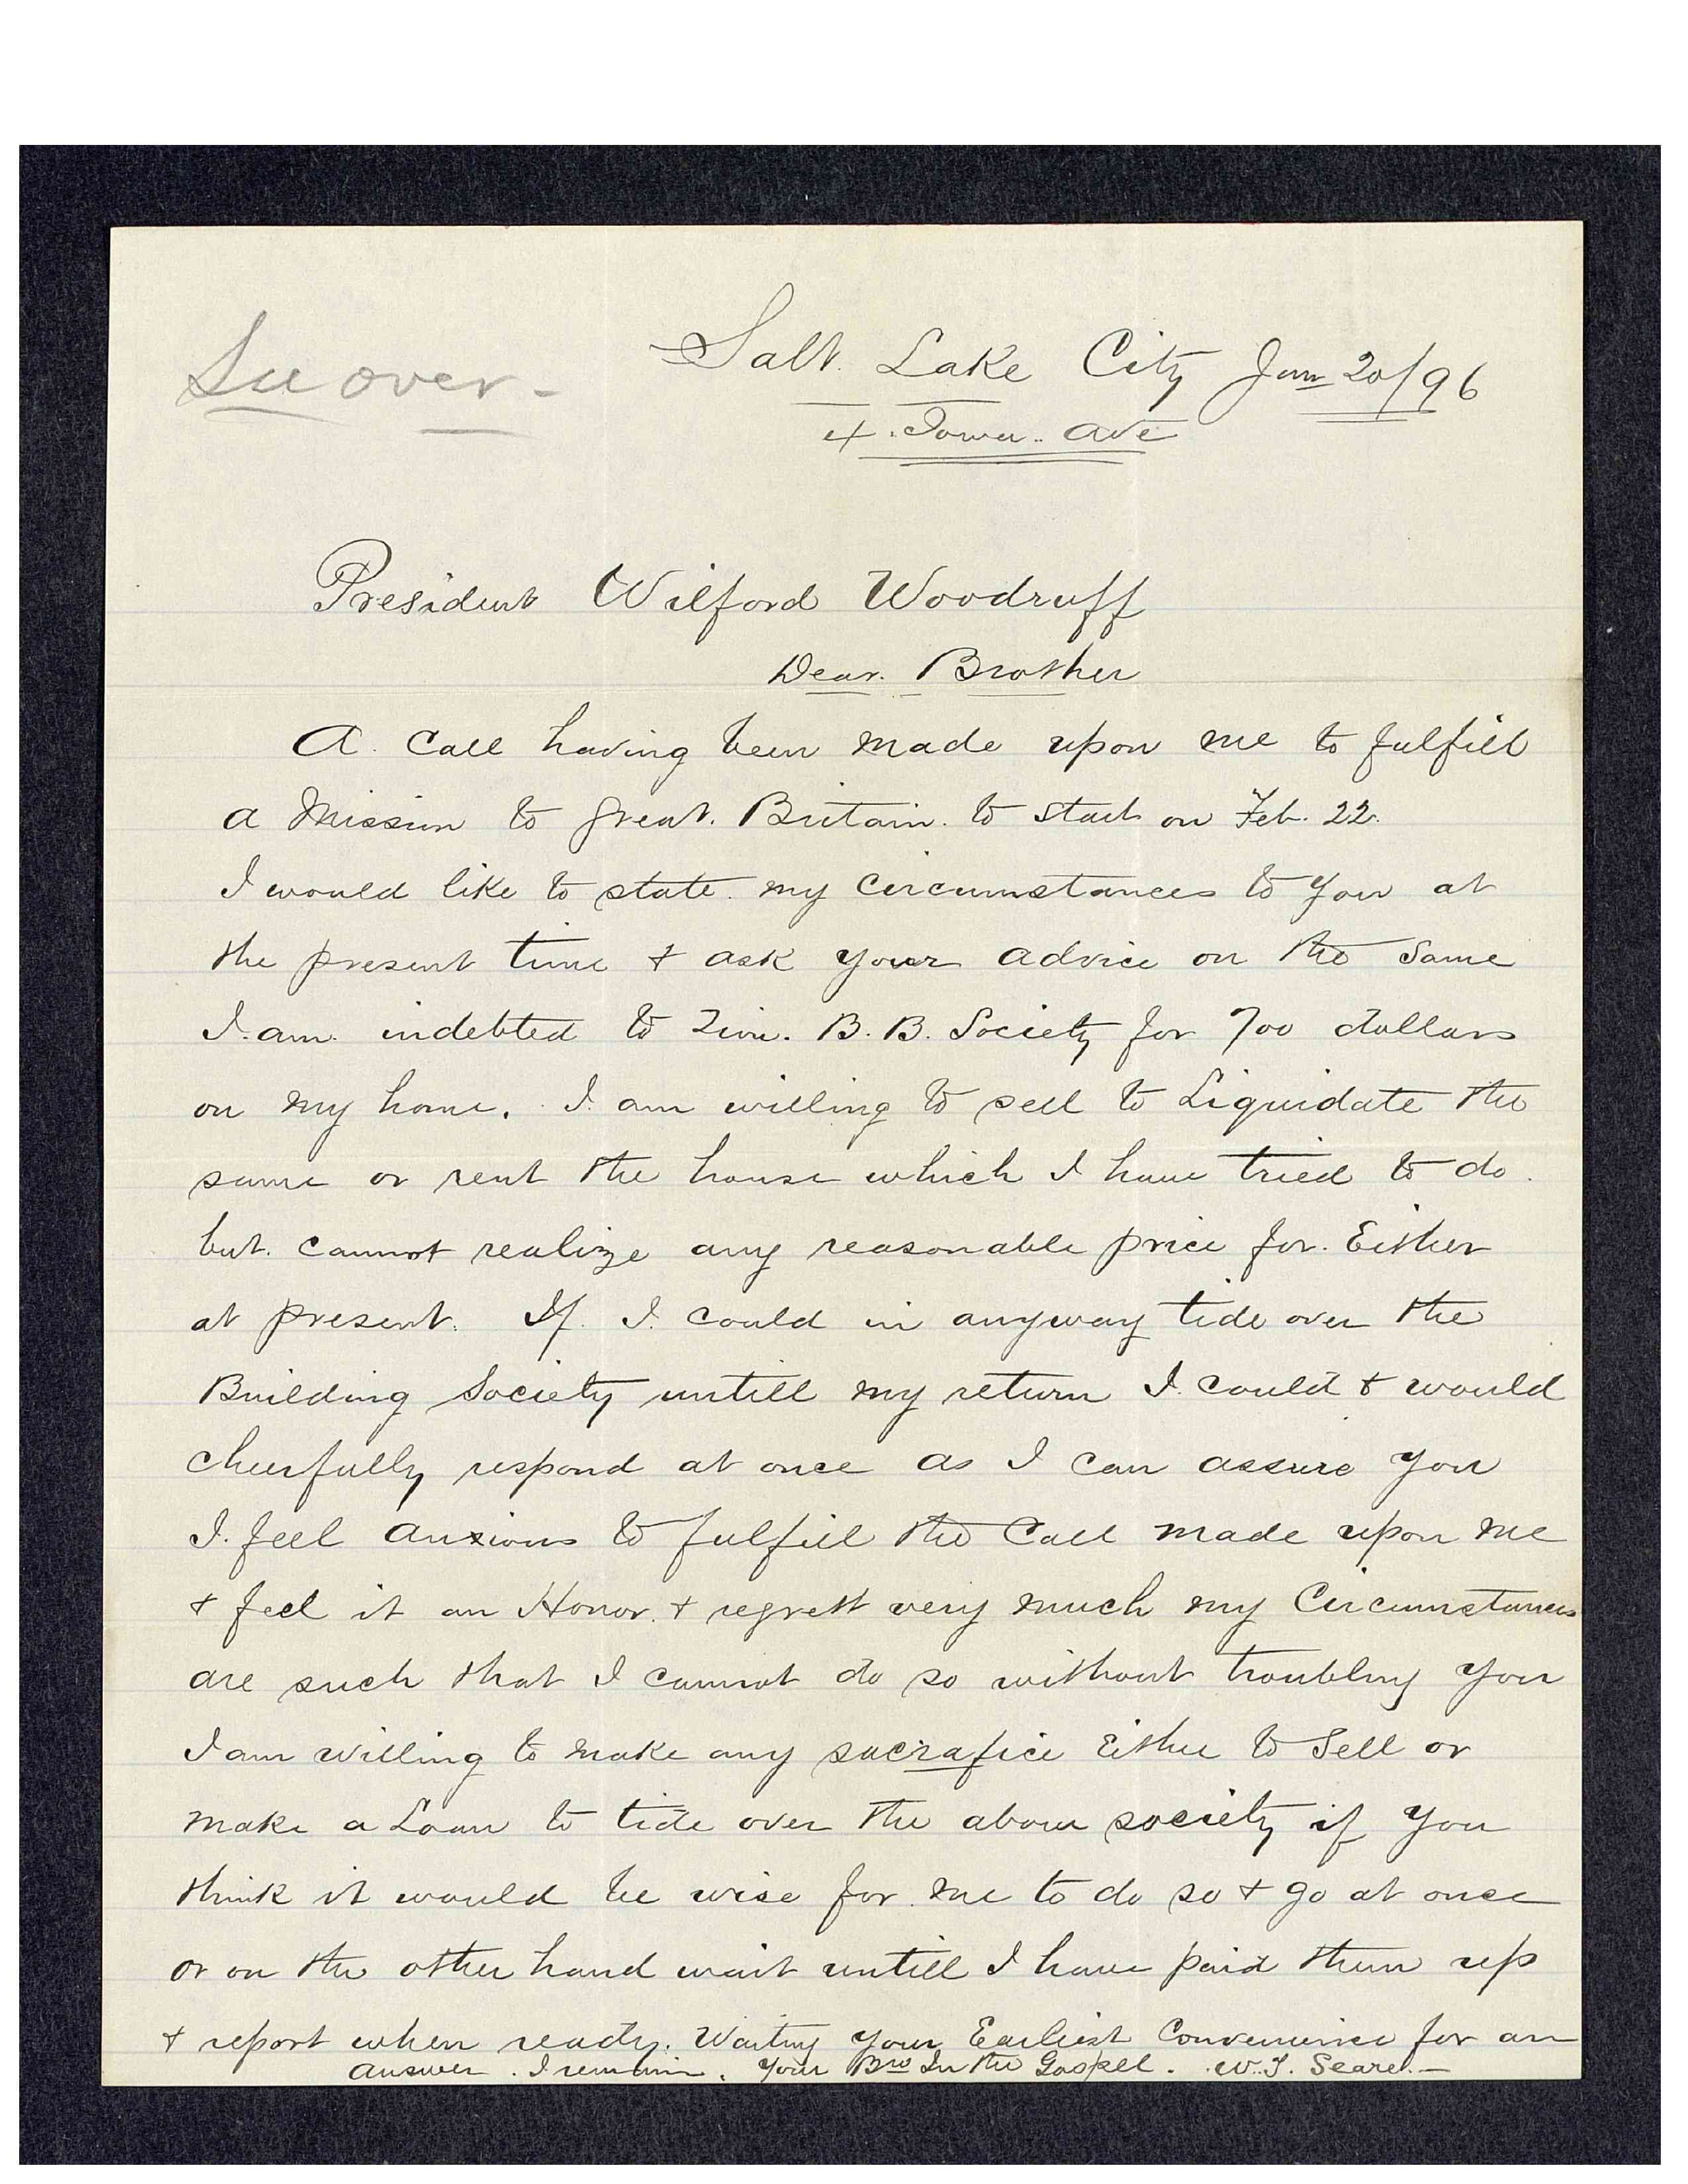 See over -
Salt. Lake City Jan 20/96
4. Iowa.. Ave
President Wilford Woodruff
Dear. Brother
A. Call having been made upon me to fulfill
a Mission to Great. Britain. to start on Feb. 22.
I would like to state. my Circumstances to you at
the present time & ask your advice on the Same
I. am. indebted to Zion. B. B. Society for 700 dollars
on my home. I. am willing to sell to Liquidate the
same or rent the house which I have tried to do.
but. cannot realize any reasonable price for. Either
at present. If. I. could in anyway tide over the
Building Society untill my return I. could & would
cheerfully respond at once as I can assure you
I. feel anxious to fulfill the Call made upon me
& feel it an Honor. & regrett very much my Circumstances
are such that I cannot do so without troubling you
I am willing to make any sacrafice Either to Sell or
make a Loan to tide over the above society if you
think it would be wise for me to do so & go at once
or on the other hand wait untill I have paid them up
& report when ready. Waiting your Earliest Convenience for an
answer. I remain. Your Bro In the Gospel. W..